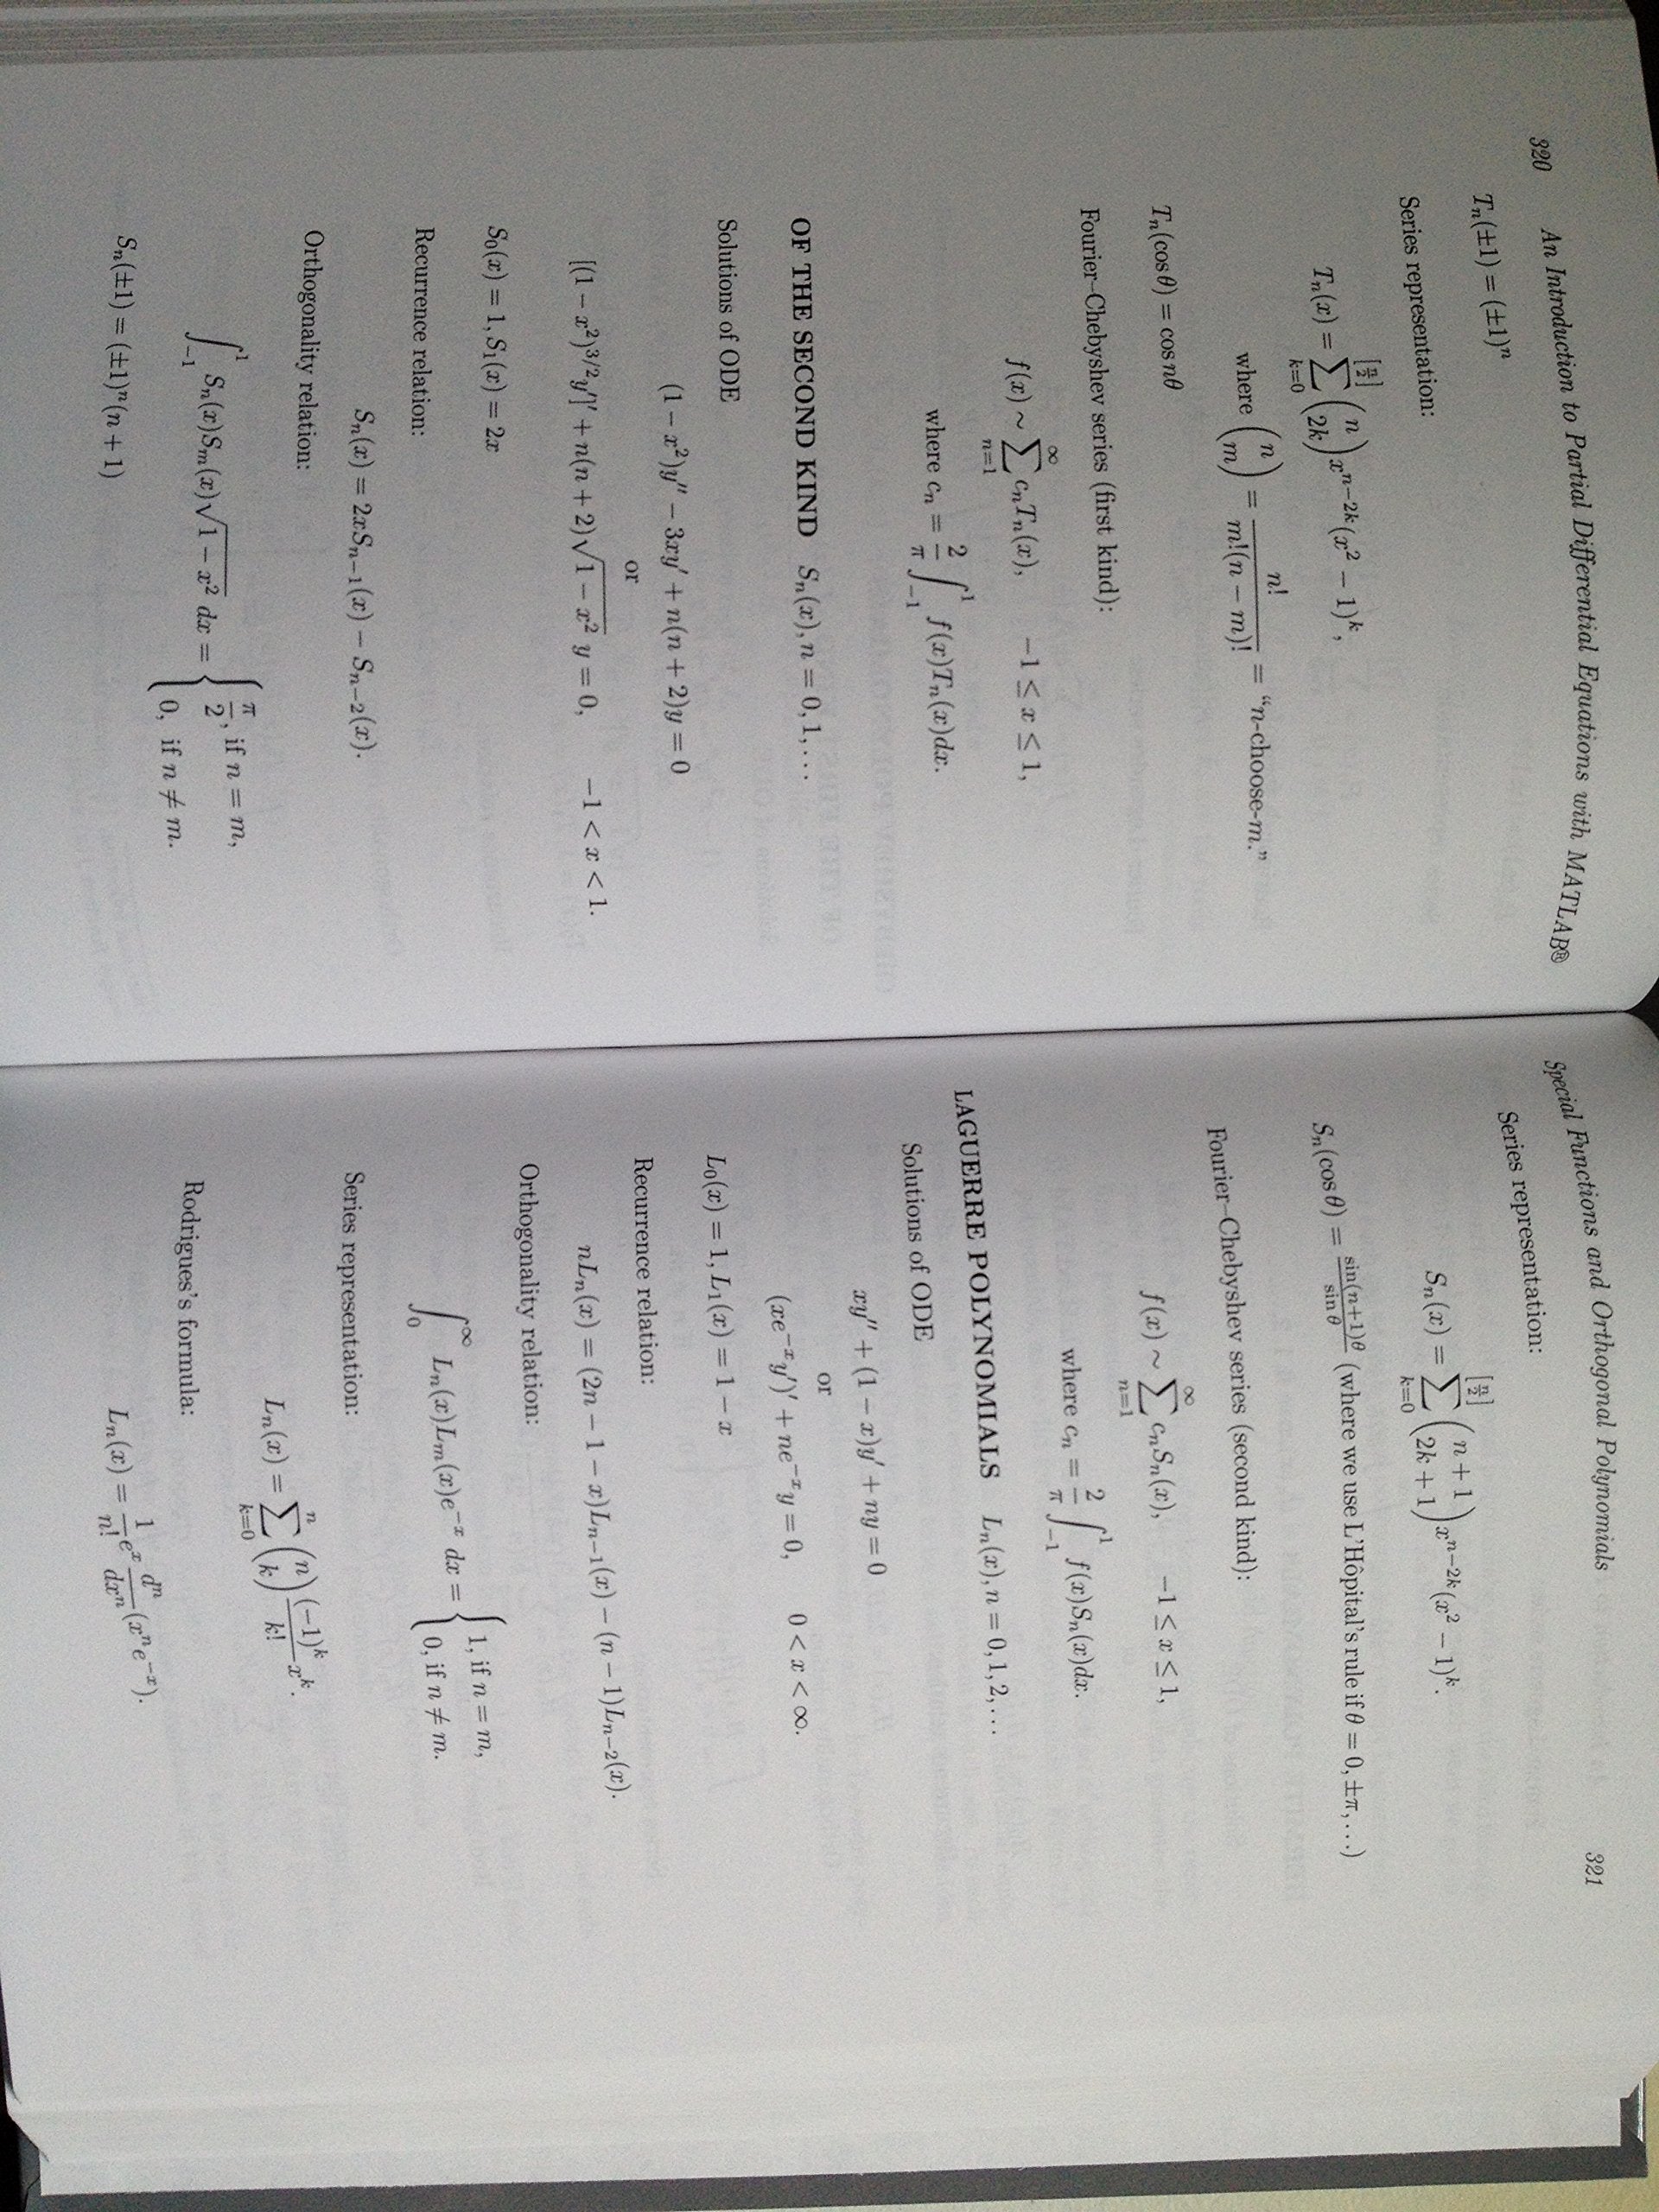 320 An Introduction to Partial Differential Equations with MATLAB®
Tₙ(±1) = (±1)ⁿ
Series representation:
Tₙ(x) = ∑_{k=0}^{[n/2]} (n choose 2k) xⁿ⁻²ᵏ(x² − 1)ᵏ,
where (n choose m) = n!/(m!(n − m)!) = “n-choose-m.”
Tₙ(cos θ) = cos nθ
Fourier–Chebyshev series (first kind):
f(x) ∼ ∑_{n=1}^{∞} cₙTₙ(x), −1 ≤ x ≤ 1,
where cₙ = 2/π ∫_{−1}^{1} f(x)Tₙ(x)dx.
OF THE SECOND KIND Sₙ(x), n = 0, 1, . . .
Solutions of ODE
(1 − x²)y″ − 3xy′ + n(n + 2)y = 0
or
[(1 − x²)^{3/2}y′]′ + n(n + 2)√(1 − x²) y = 0, −1 < x < 1.
S₀(x) = 1, S₁(x) = 2x
Recurrence relation:
Sₙ(x) = 2xSₙ₋₁(x) − Sₙ₋₂(x).
Orthogonality relation:
∫_{−1}^{1} Sₙ(x)Sₘ(x)√(1 − x²) dx = { π/2, if n = m,
0, if n ≠ m.
Sₙ(±1) = (±1)ⁿ(n + 1)
Special Functions and Orthogonal Polynomials 321
Series representation:
Sₙ(x) = ∑_{k=0}^{[n/2]} (n + 1 choose 2k + 1) xⁿ⁻²ᵏ(x² − 1)ᵏ.
Sₙ(cos θ) = sin(n+1)θ / sin θ (where we use L’Hôpital’s rule if θ = 0, ±π, . . .)
Fourier–Chebyshev series (second kind):
f(x) ∼ ∑_{n=1}^{∞} cₙSₙ(x), −1 ≤ x ≤ 1,
where cₙ = 2/π ∫_{−1}^{1} f(x)Sₙ(x)dx.
LAGUERRE POLYNOMIALS Lₙ(x), n = 0, 1, 2, . . .
Solutions of ODE
xy″ + (1 − x)y′ + ny = 0
or
(xe⁻ˣy′)′ + ne⁻ˣy = 0, 0 < x < ∞.
L₀(x) = 1, L₁(x) = 1 − x
Recurrence relation:
nLₙ(x) = (2n − 1 − x)Lₙ₋₁(x) − (n − 1)Lₙ₋₂(x).
Orthogonality relation:
∫_{0}^{∞} Lₙ(x)Lₘ(x)e⁻ˣ dx = { 1, if n = m,
0, if n ≠ m.
Series representation:
Lₙ(x) = ∑_{k=0}^{n} (n choose k) (−1)ᵏ/k! xᵏ.
Rodrigues’s formula:
Lₙ(x) = 1/n! eˣ dⁿ/dxⁿ (xⁿe⁻ˣ).